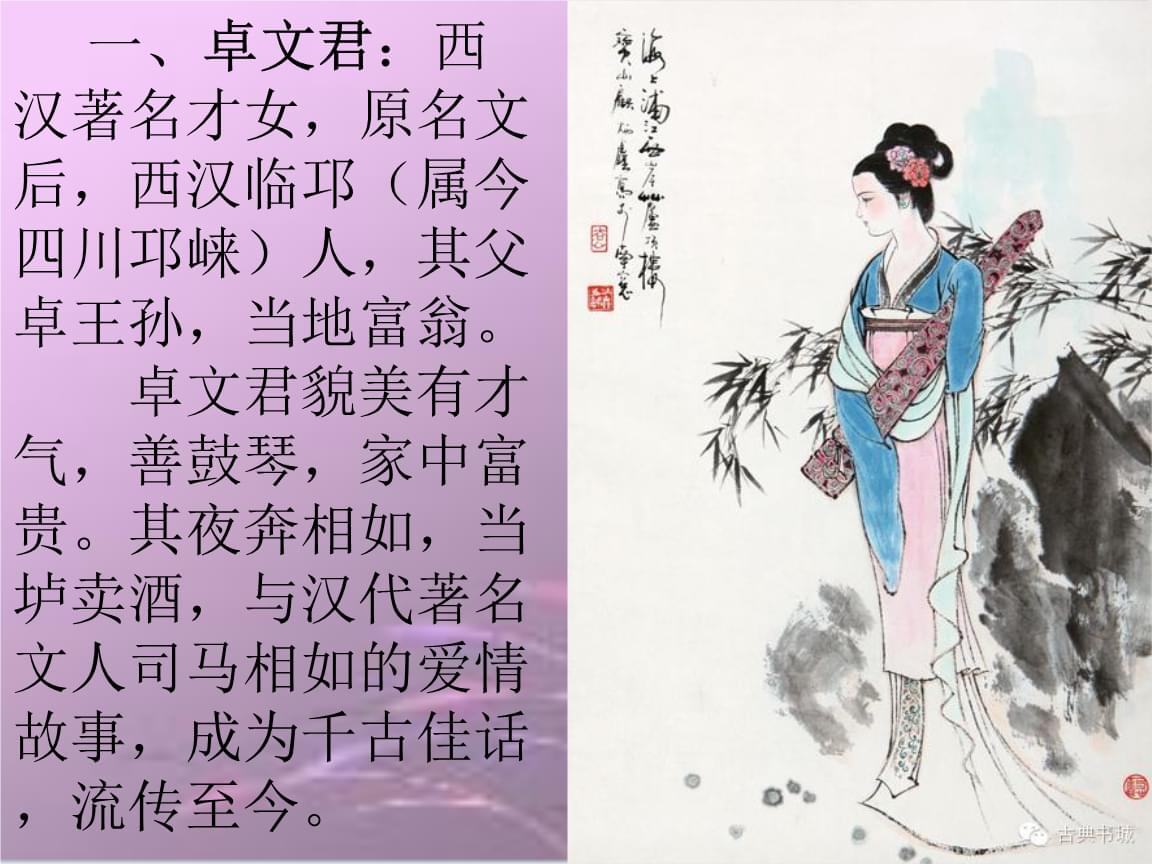 一、卓文君：西
汉著名才女，原名文
后，西汉临邛（属今
四川邛崃）人，其父
卓王孙，当地富翁。
卓文君貌美有才
气，善鼓琴，家中富
贵。其夜奔相如，当
垆卖酒，与汉代著名
文人司马相如的爱情
故事，成为千古佳话
，流传至今。
海上浦江西岸
古典书城